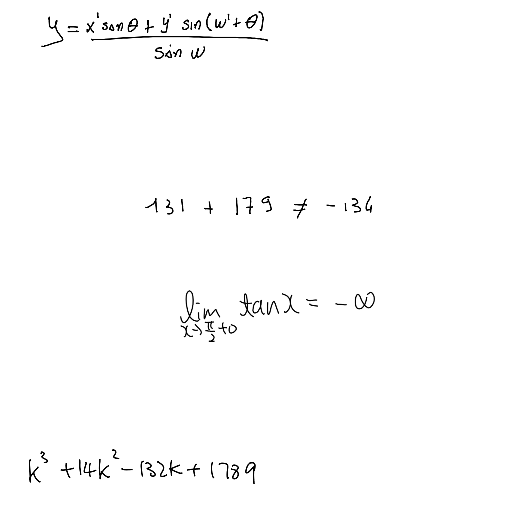 y = \frac{x' \sin θ + y' \sin(w' + θ)}{\sin w}
131 + 179 ≠ -134
\lim_{x→\frac{π}{2}+0} \tan x = -∞
k^3 + 14k^2 - 132k + 1789